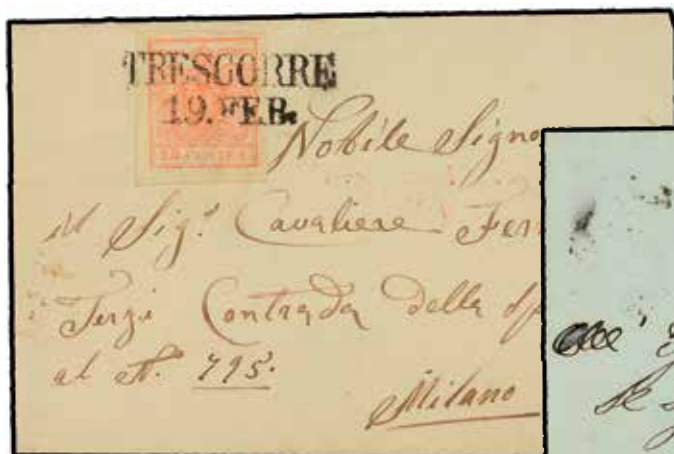 TRESCORRE
19. FEB.
Nobile Signo
Al Sig.r Cavaliere Fer
Terzi Contrada della
al N. 795.
Milano